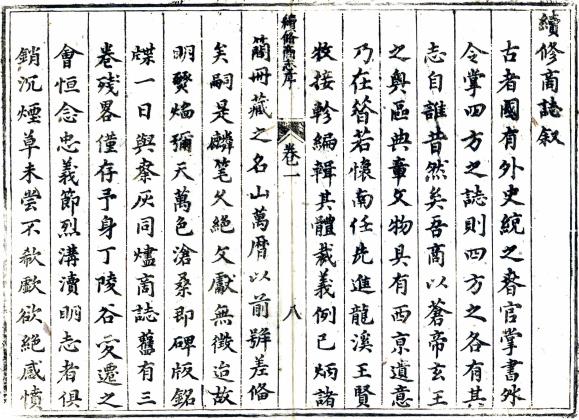 續修商誌叙
古者國有外史統之春官掌書外
令掌四方之誌則四方之各有其
志自誰昔然矣吾商以蒼帝玄王
之奥區典章文物具有西京遺意
乃在若懷南任先進龍溪王賢
牧接軫編輯其體裁義例已炳諸
續修商志序
卷一
八
簡冊藏之名山萬曆以前號差俻
矣嗣是麟笔久絕文獻無徵迨故
明燹焰彌天萬色滄桑即碑版銘
牒一日與灰同燼商誌舊有三
卷残畧僅存予身丁陵谷変遷之
會恒念忠義節烈溝瀆明志者俱
銷沉煙草未嘗不欷歔欲絕感憤